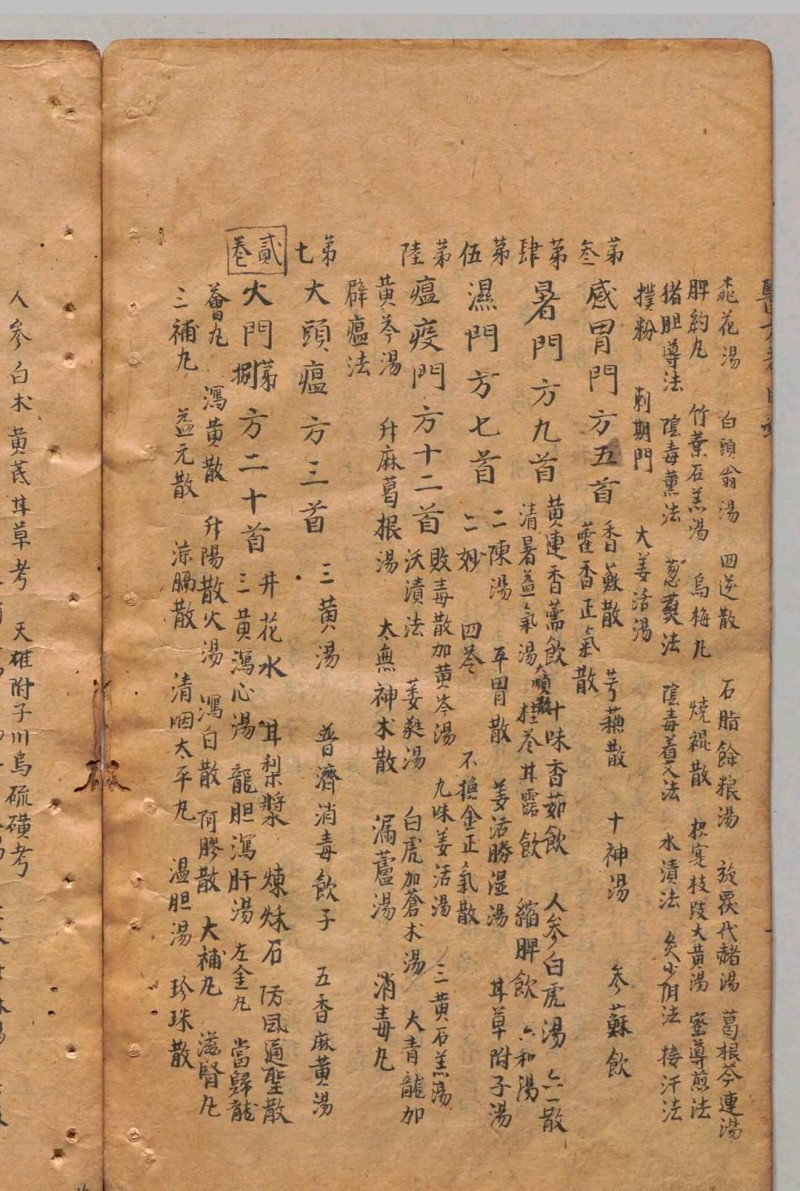 桃花湯 白頭翁湯 四逆散 石脂餘粮湯 旋覆代赭湯 葛根芩連湯
脾約九 竹葉石羔湯 烏梅九 燒裩散 枳寔枝陖大黃湯 蜜導煎法
猪胆導法 陰毒薰法 葱熨法 陰毒着艾法 水漬法 灸少阴法 接汗法
撲粉 刺期門 大姜活湯
第叁 感冒門方五首 香蘇散 芎蘓散 十神湯 參蘇飲
藿香正氣散
第肆 暑門方九首 黃連香薷飲 十味香茹飲 人參白虎湯 六一散
清暑益氣湯 桂苓甘露飲 縮脾飲 六和湯
第伍 濕門方七首 二陳湯 平胃散 姜活勝湿湯 甘草附子湯
二妙 四苓 不換金正氣散
第陸 瘟疫門方十二首 敗毒散加黃岑湯 九味姜活湯 三黃石羔湯
沃漬法 姜蕤湯 白虎加蒼术湯 大青龍加
黃芩湯 升麻葛根湯 太無神术散 漏蘆湯 消毒九
辟瘟法
第七 大頭瘟方三首 三黃湯 普濟消毒飲子 五香麻黃湯
貳卷 火門第捌方二十首 井花水 甘梨漿 煉妹石 防風通聖散
三黃瀉心湯 龍胆瀉肝湯 左金九 當歸龍
薈九 瀉黃散 升陽散火湯 瀉白散 阿膠散 大補九 滋腎九
三補九 益元散 凉膈散 清咽太平九 温胆湯 珍珠散
人參白术黃茋甘草考 天雄附子川烏硫磺考